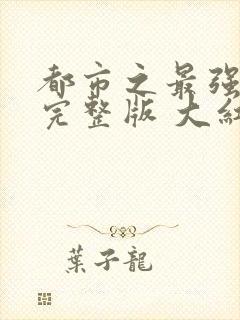 都市之最强
完整版 大红
葉子龍